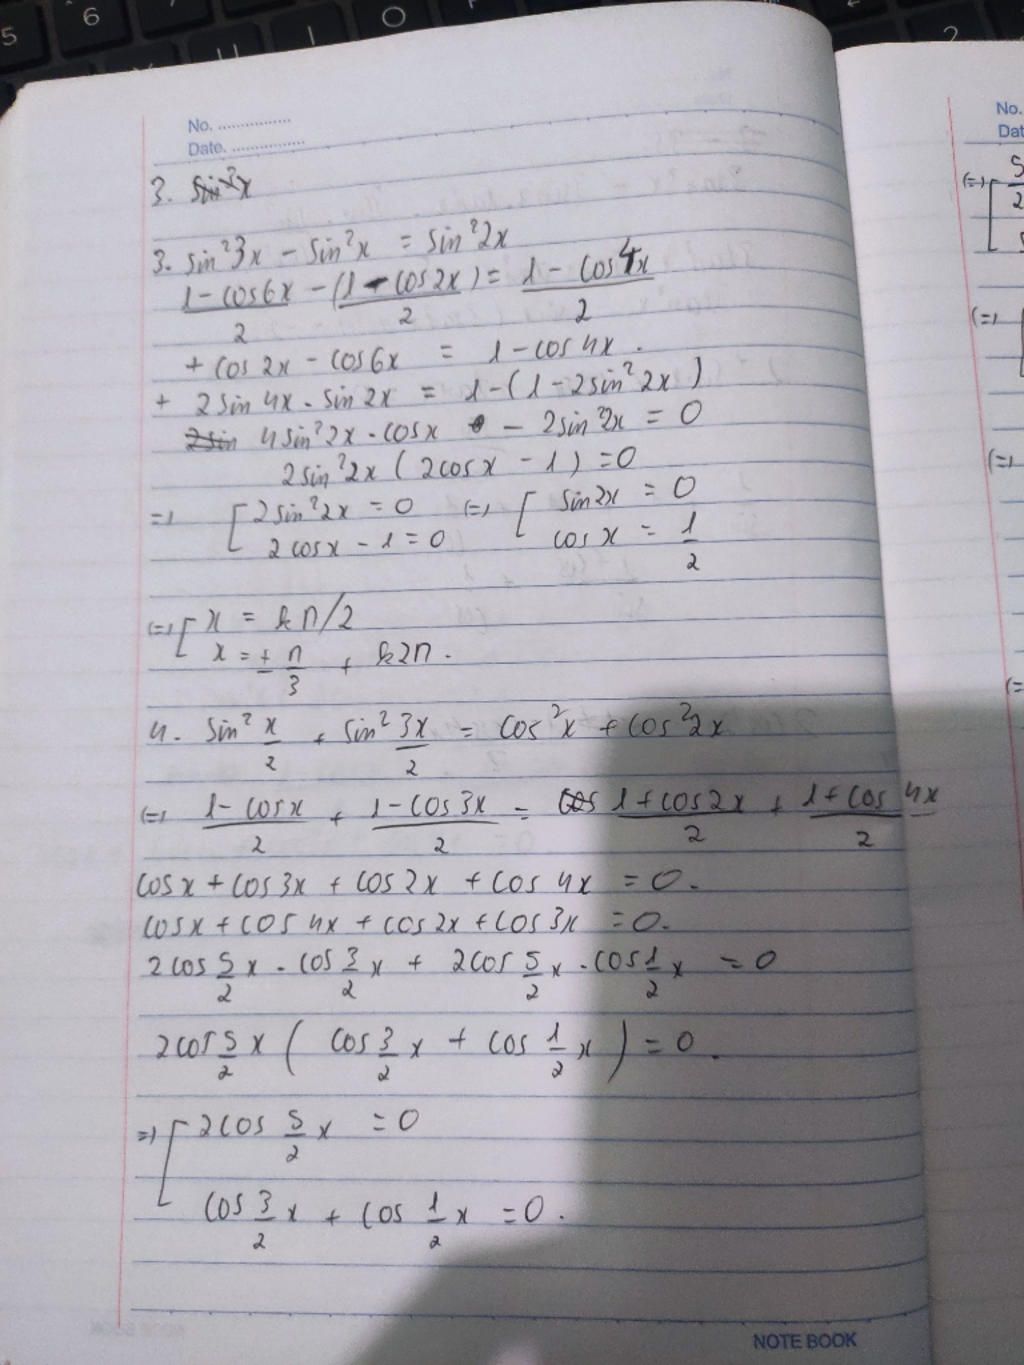 5 6 O
2
No. ...............
Date. ...............
3. sin²x
3. sin²3x - sin²x = sin²2x
(1-cos6x)/2 - (1-cos2x)/2 = (1-cos4x)/2
+ cos2x - cos6x = 1-cos4x.
+ 2sin4x.sin2x = 1-(1-2sin²2x)
2sin 4sin²2x.cosx - 2sin²2x = 0
2sin²2x(2cosx - 1) = 0
=> [ 2sin²2x = 0 (=) [ sin2x = 0
2cosx - 1 = 0 cosx = 1/2
(=) [ x = kπ/2
x = ± π/3 + k2π.
4. sin² x/2 + sin² 3x/2 = cos²x + cos²2x
(=) (1-cosx)/2 + (1-cos3x)/2 = cos (1+cos2x)/2 + (1+cos4x)/2
cosx + cos3x + cos2x + cos4x = 0.
cosx + cos4x + cos2x + cos3x = 0.
2cos 5/2 x . cos 3/2 x + 2cos 5/2 x . cos 1/2 x = 0
2cos 5/2 x ( cos 3/2 x + cos 1/2 x ) = 0.
=> [ 2cos 5/2 x = 0
cos 3/2 x + cos 1/2 x = 0.
NOTE BOOK
No.
Dat
(=) [
(=)
(=)
(=